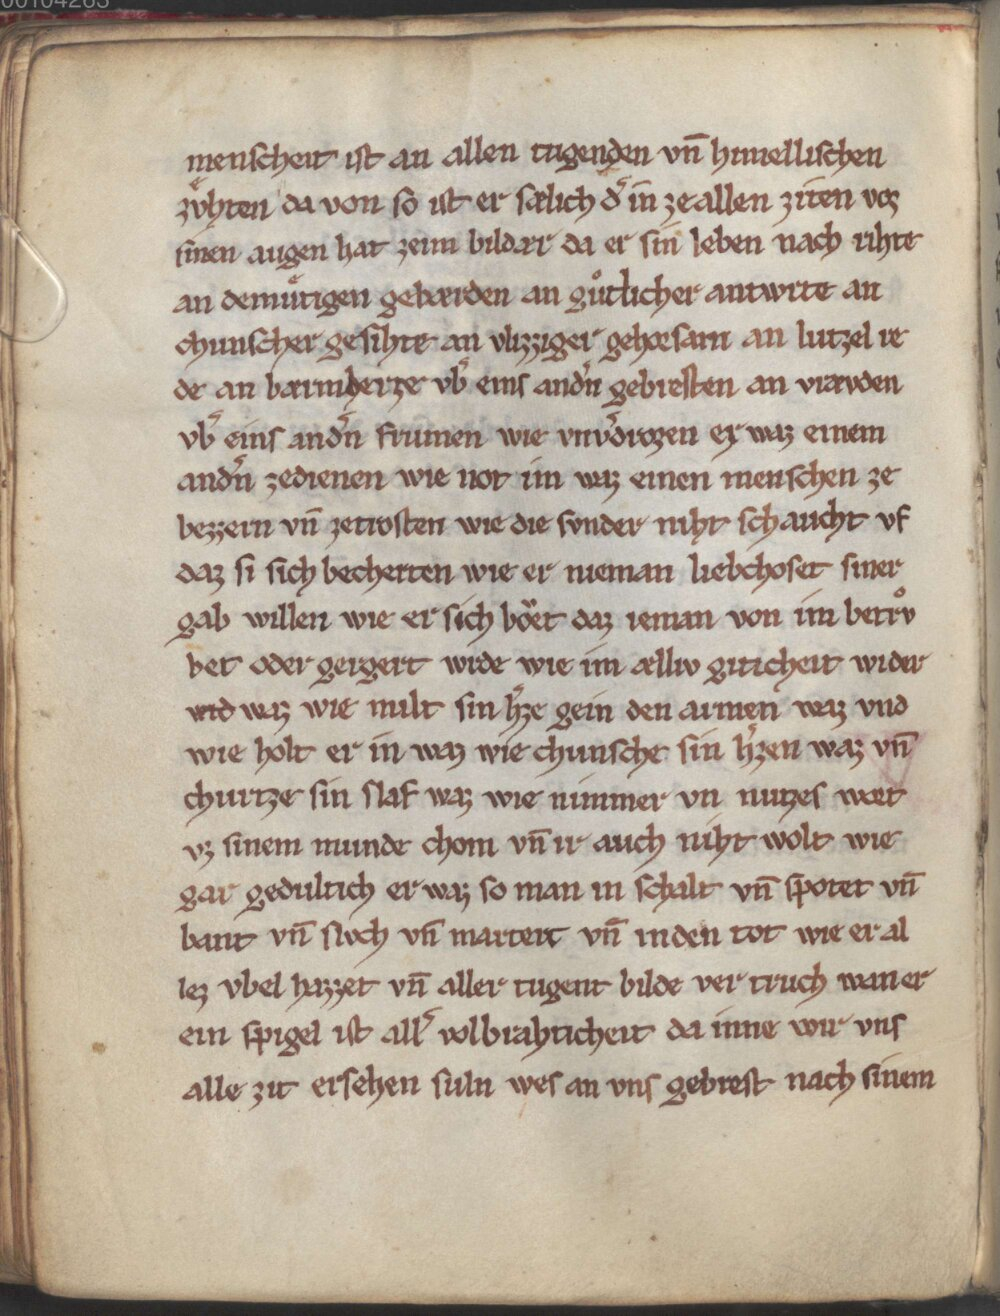 00104263
menscheit ist an allen tugenden vn̄ himellischen
zvͤhten da von so ist er sælich d͛ in ze allen ziten vor
sinen augen hat zeim bildær da er sin leben nach rihte
an demuͤtigen gebærden an guͦtlicher antwrte an
chunscher gesihte an vlizziger gehorsam an lutzel re
de an barmherze vb͛ eins and͛n gebresten an vrævden
vb͛ eins and͛n frumen wie vnv͛drozen er waz einem
and͛n zedienen wie not im waz einen menschen ze
bezzern vn̄ zetrosten wie die svnder niht schaucht vf
daz si sich becherten wie er nieman liebchoset siner
gab willen wie er sich boͤt daz ieman von im betrvͦ
bet oder gergert wrde wie im ælliv giticheit wider
waz wie milt sin h͛ze gein den armen waz vnd
wie holt er in waz wie chunsche sin h͛zen waz vn̄
churtze sin slaf waz wie nimmer vn nutzes wort
vz sinem munde chom vn̄ ir auch niht wolt wie
gar gedultich er waz so man in schalt vn̄ spotet vn̄
bant vn̄ slvch vn̄ martert vn̄ in den tot wie er al
lez vbel hazzet vn̄ aller tugent bilde ver truch wan er
ein spigel ist all͛ volbrahticheit da inne wir vns
alle zit ersehen suln wes an vns gebrest nach sinem